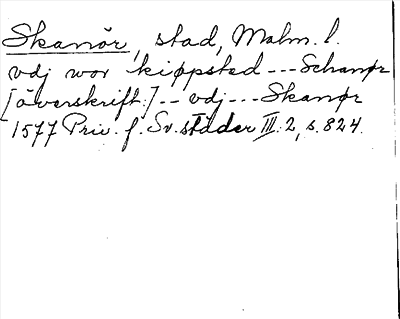 Skanör, stad, Malm. l.
vdj wor kiøpsted --- Schanør
[överskrift:] -- vdj --- Skanør
1577 Priv. f. Sv. städer III: 2, s. 824.